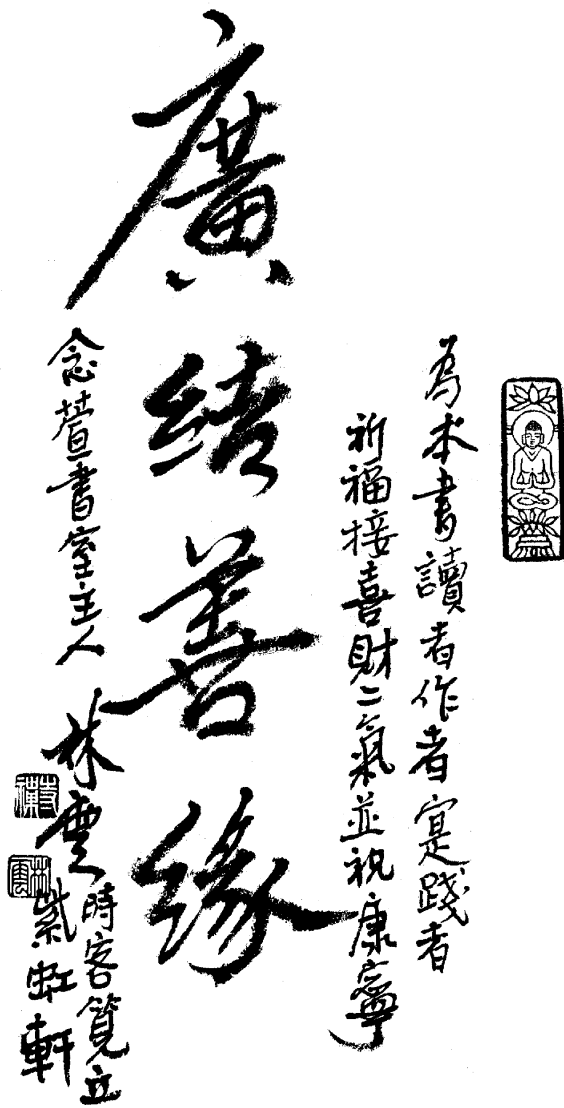 為本書讀者作者寔踐者
祈福接喜財二氣並祝康寧
廣結善緣
念萱書室主人
林雲
時客覽丘
紫虹軒